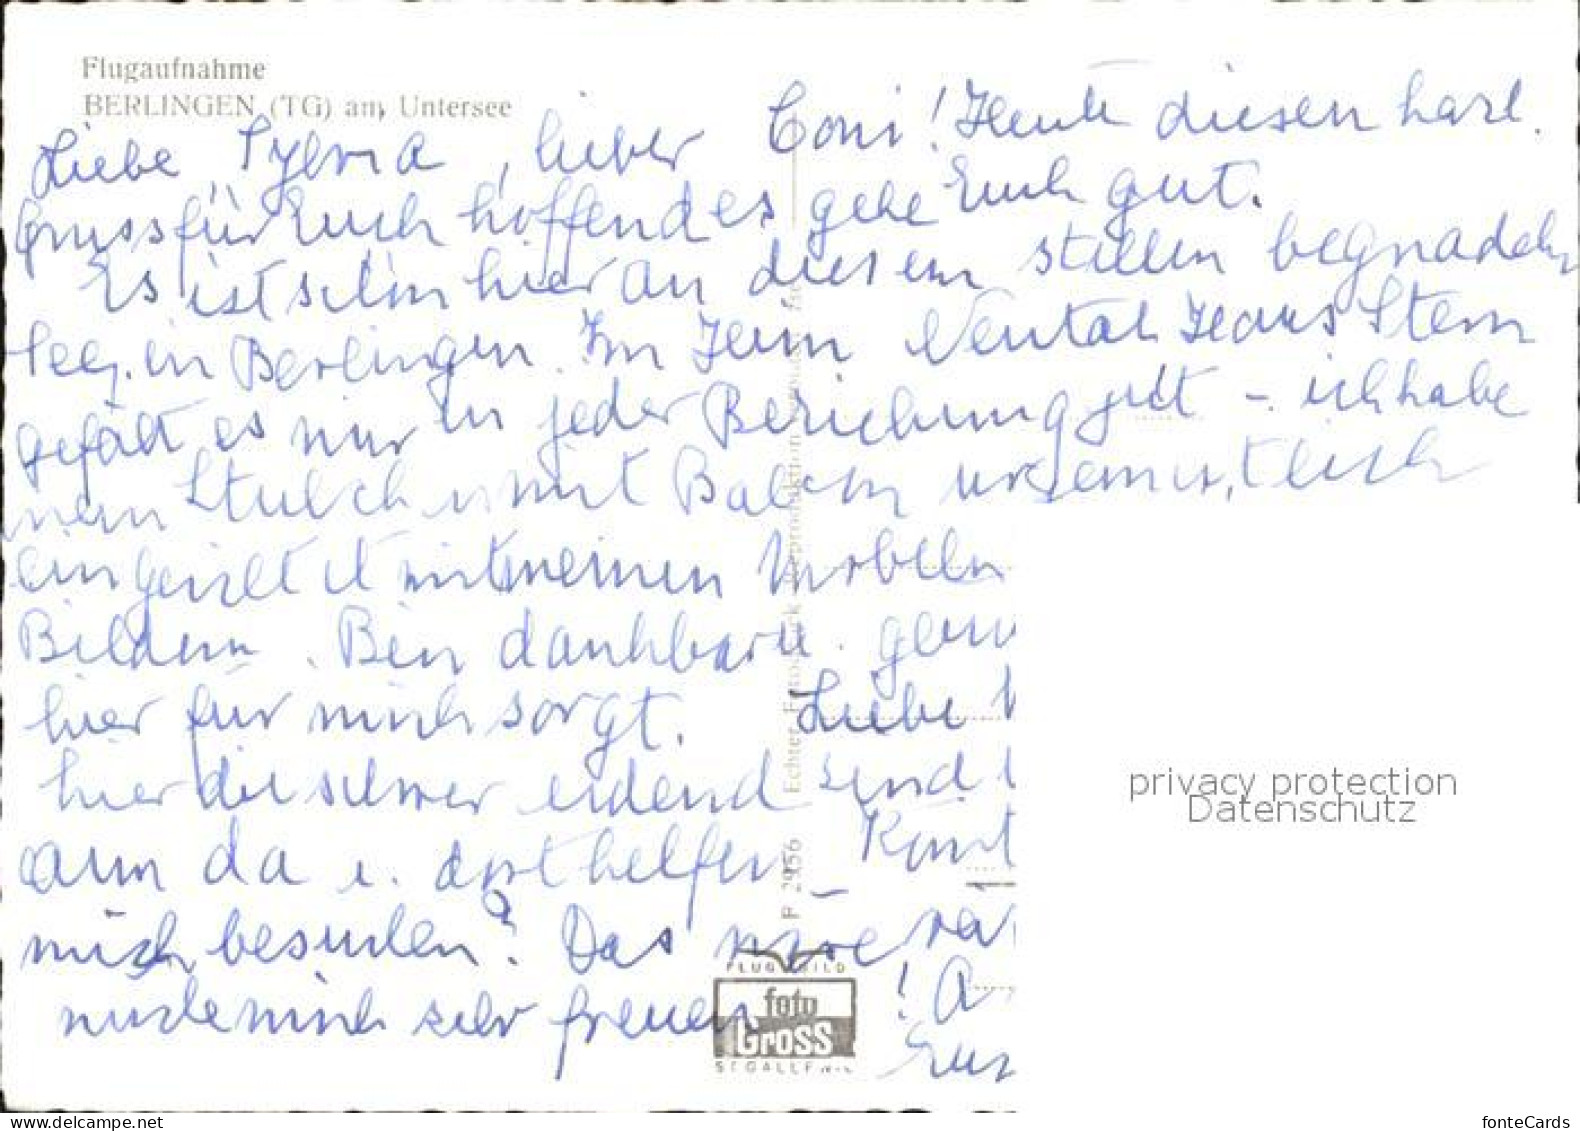 Flugaufnahme
BERLINGEN (TG) am Untersee
Liebe Sylvia, lieber Coni! Heute diesen harzl.
Gruss für Euch hoffend es gehe Euch gut.
Es ist schön hier an diesem stillen begnadeten
See, in Berlingen. Im Heim Neutal Haus Stern
gefällt es mir in jeder Beziehung gut - ich habe
mein Stübchen mit Balkon
eingerichtet mit meinen Möbeln
Bildern. Bin dankbar
hier für mich sorgt. Liebe
hier die schwer leidend sind
dann da u. dort helfen - Könnt
mich besuchen? Das wäre
würde mich sehr freuen!
Echter Fotodruck Reproduktion
F 2956
FLUGBILD
foto
Gross
ST. GALLEN
privacy protection
Datenschutz
www.delcampe.net
fonteCards